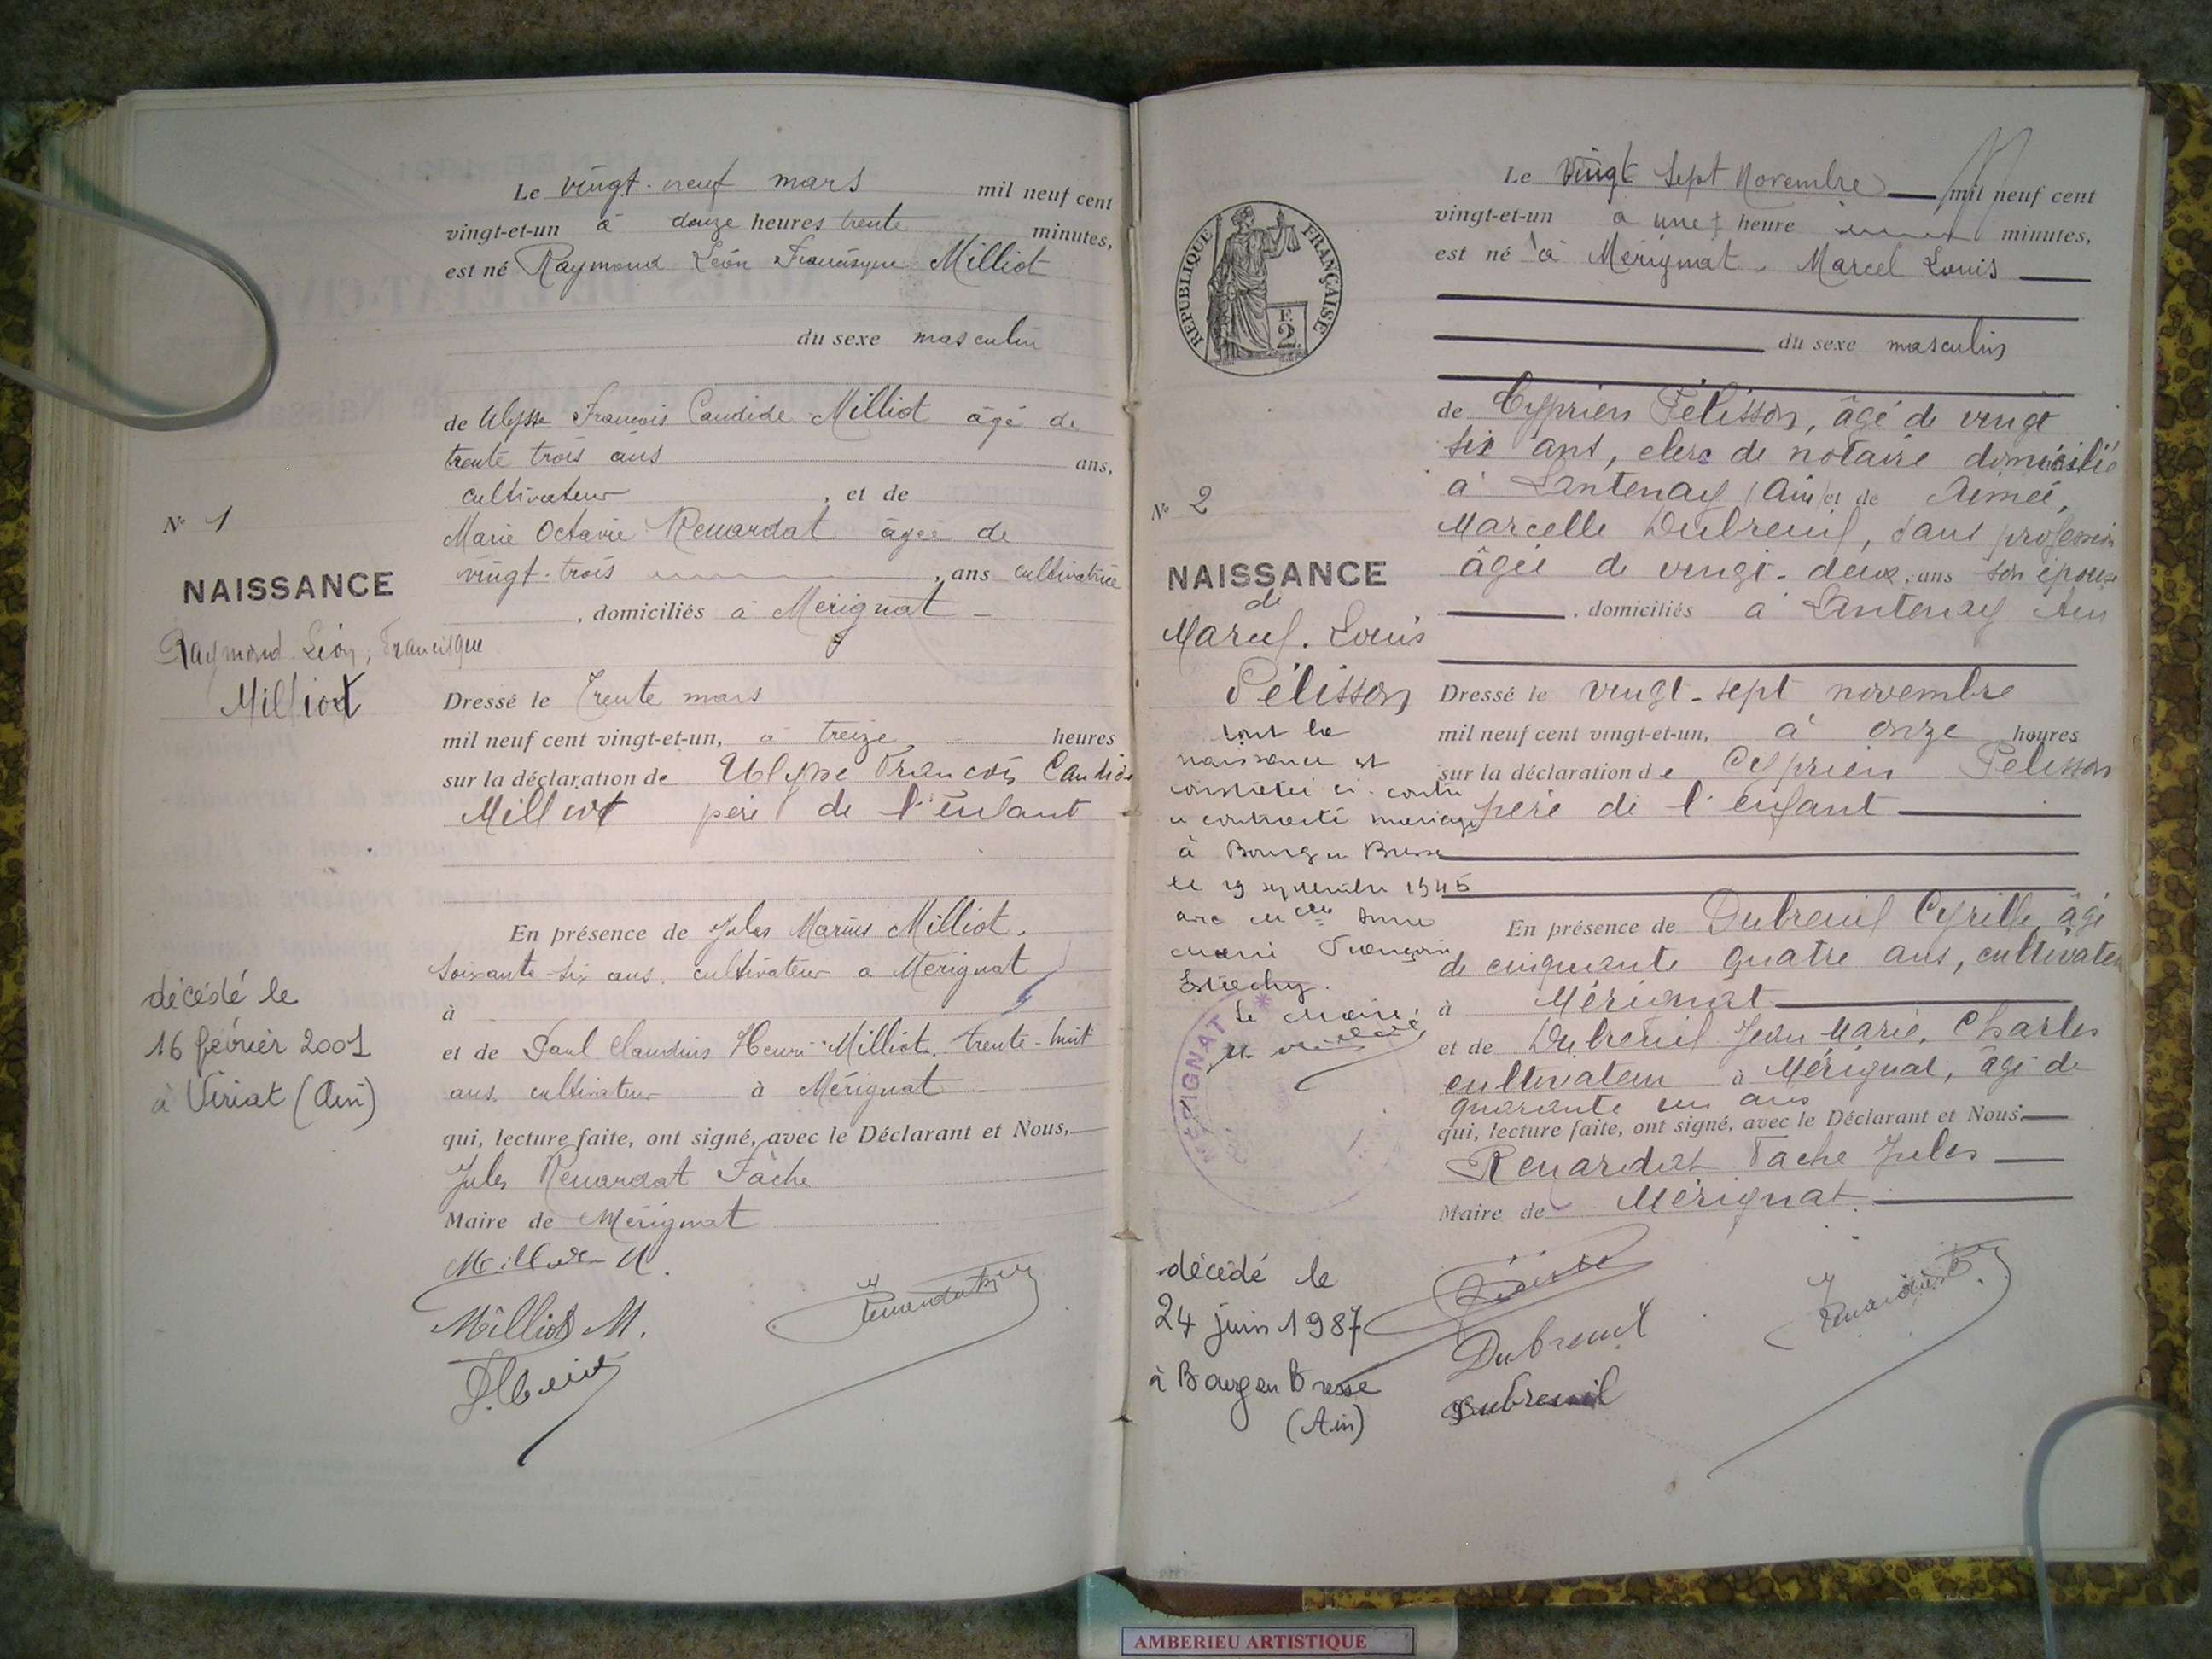 Le vingt-neuf mars mil neuf cent
vingt-et-un à douze heures trente minutes,
est né Raymond Léon Francisque Milliot
du sexe masculin
de Ulysse François Candide Milliot âgé de
trente trois ans ans,
cultivateur, et de
Marie Octavie Renardat âgée de
vingt-trois, ans cultivatrice
, domiciliés à Mérignat
Nº 1
NAISSANCE
Raymond Léon, Francisque
Milliot
Dressé le Trente mars
mil neuf cent vingt-et-un, à treize heures
sur la déclaration de Ulysse François Candide
Milliot père de l'enfant
En présence de Jules Marius Milliot.
soixante-six ans. cultivateur a Mérignat
à
et de Paul Claudius Henri Milliot. trente-huit
ans. cultivateur à Mérignat
qui, lecture faite, ont signé, avec le Déclarant et Nous,
Jules Renardat Fâche
Maire de Mérignat
Milliot U.
Milliot M.
décédé le
16 février 2001
à Viriat (Ain)
Le Vingt Sept Novembre mil neuf cent
vingt-et-un a une heure minutes,
est né à Mérignat. Marcel Louis
du sexe masculin
REPUBLIQUE FRANÇAISE
F.
2.
de Cyprien Pélisson, âgé de vingt
six ans, clerc de notaire domicilié
à Lantenay (Ain) et de Aimée,
Marcelle Dubreuil, sans profession
âgée de vingt-deux, ans son épouse
, domiciliés à Lantenay Ain
Nº 2
NAISSANCE
de
Marcel. Louis
Pélisson
Dressé le vingt-sept novembre
mil neuf cent vingt-et-un, à onze heures
sur la déclaration de Cyprien Pélisson
père de l'enfant
dont la
naissance est
constatée ci-contre
a contracté mariage
à Bourg en Bresse
le 19 septembre 1945
avec Melle Anne
Marie Françoise
Le Maire,
MÉRIGNAT
En présence de Dubreuil Cyrille âgé
de cinquante quatre ans, cultivateur
à Mérignat
et de Dubreuil Jean Marie, Charles
cultivateur à Mérignat, âgé de
quarante un ans
qui, lecture faite, ont signé, avec le Déclarant et Nous,
Renardat Fache Jules
Maire de Mérignat.
Dubreuil
Dubreuil
décédé le
24 juin 1987
à Bourg en Bresse
(Ain)
AMBERIEU ARTISTIQUE